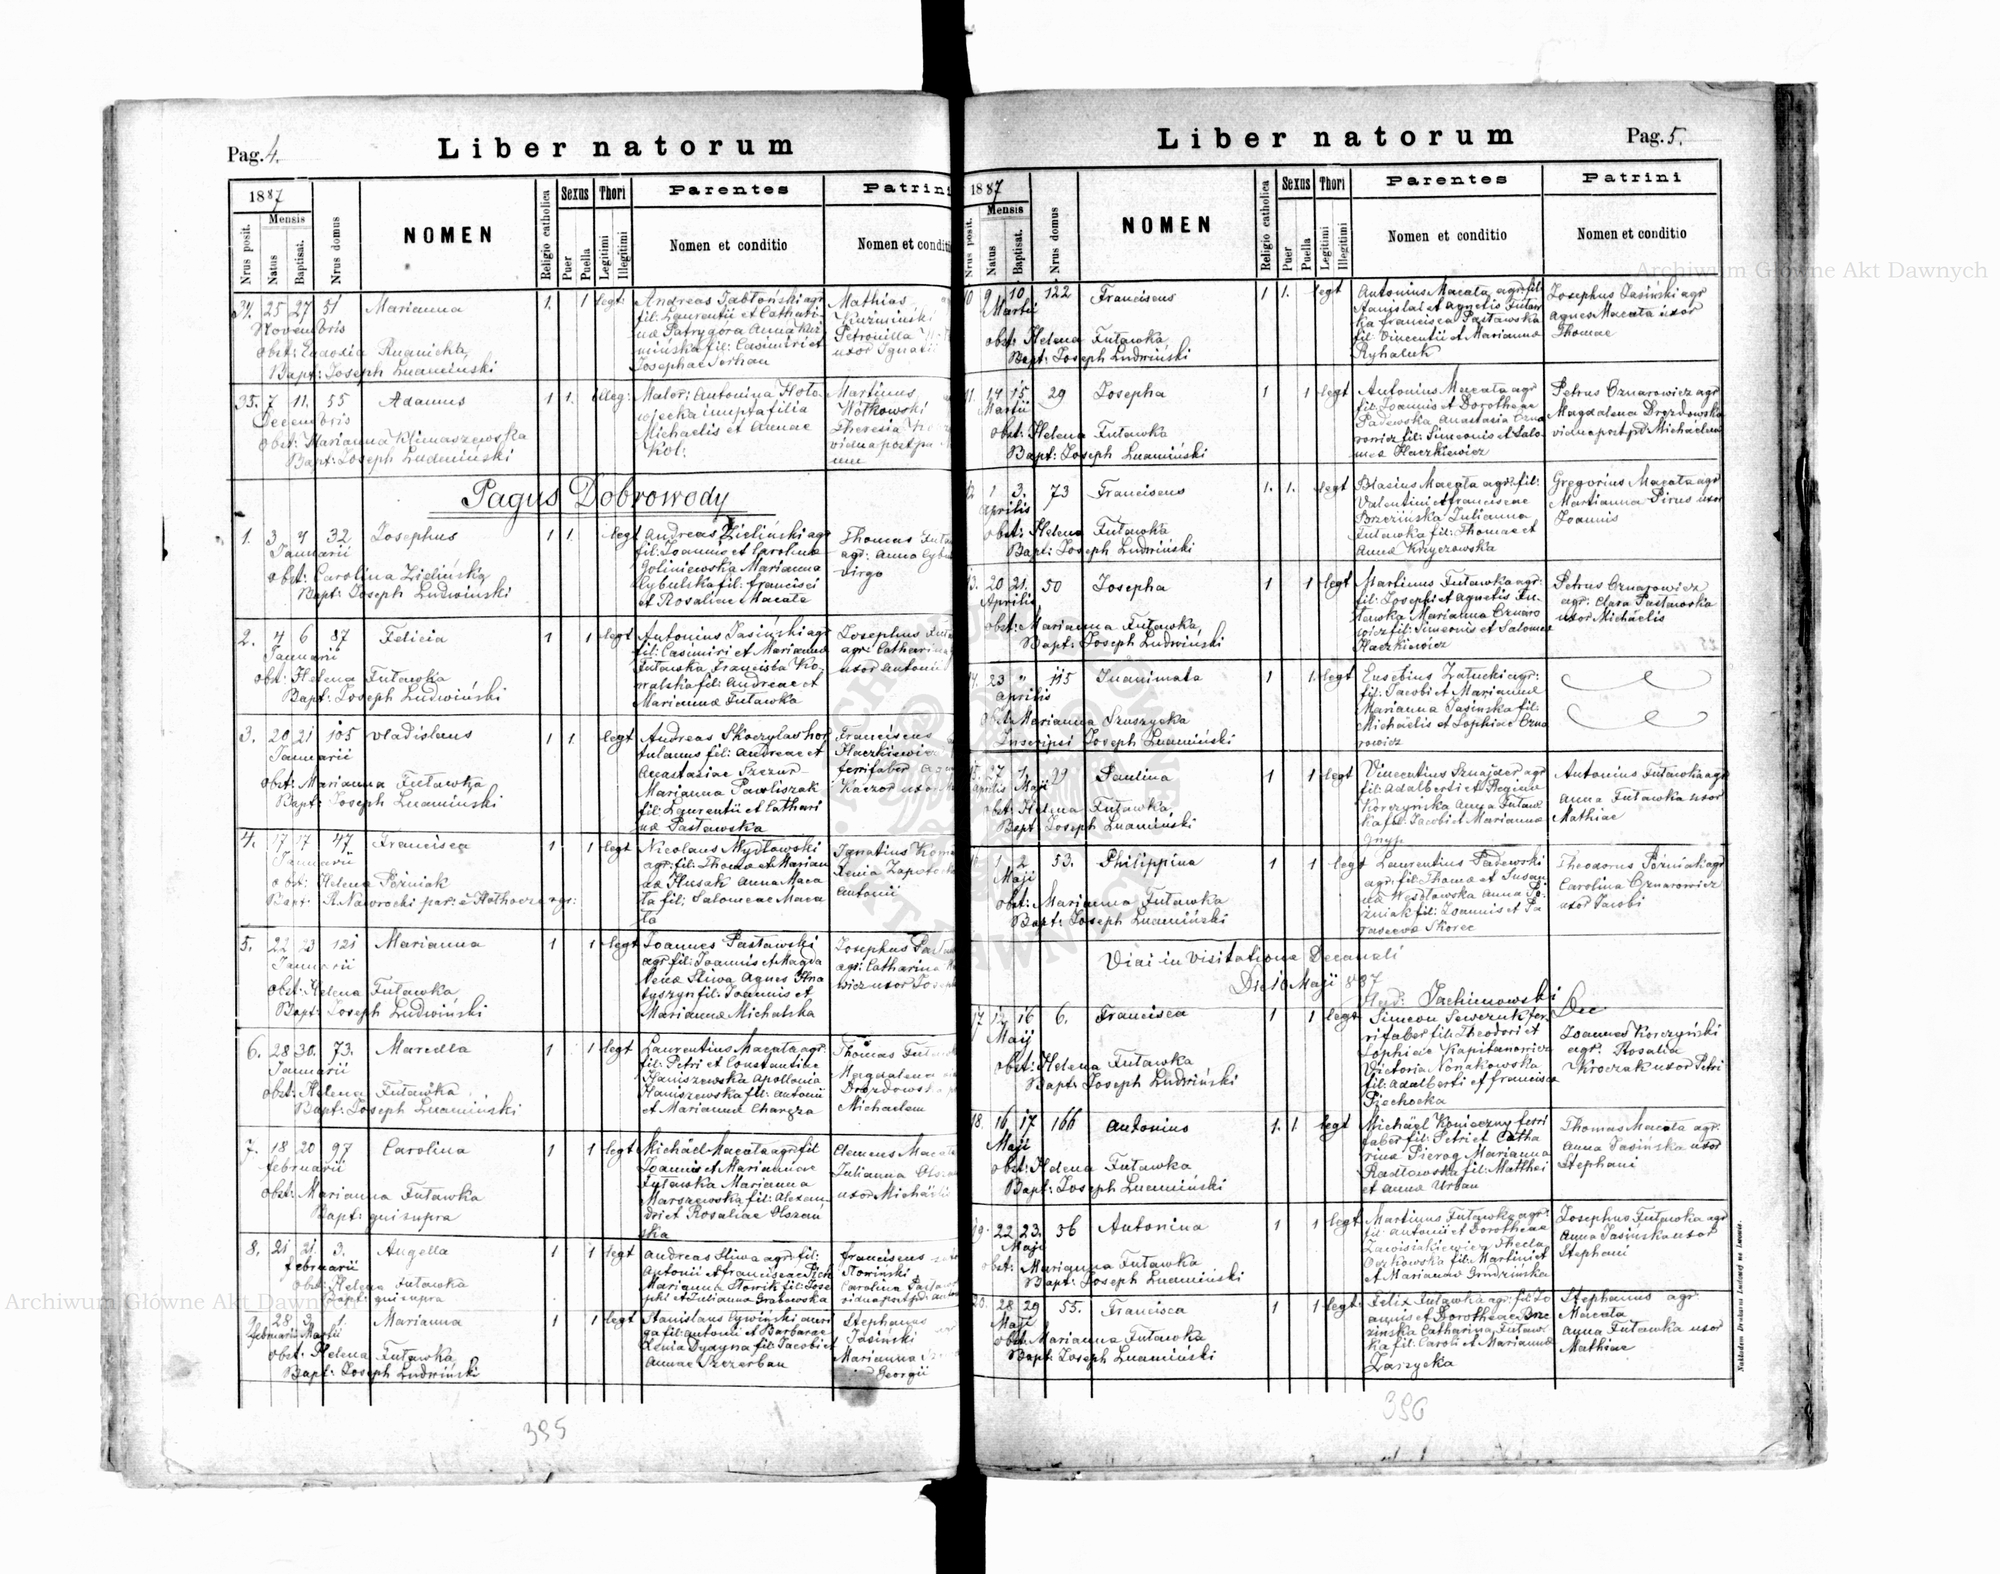 Pag. 4.
Liber natorum
1887
Mensis
Nrus posit.
Natus
Baptisat.
Nrus domus
NOMEN
Religio catholica
Sexus
Puer
Puella
Thori
Legitimi
Illegitimi
Parentes
Nomen et conditio
Patrini
Nomen et conditi
34. 25 27 51 Marianna 1. 1 legt:
Novembris
obst: Eudoxia
Bapt: Joseph Ludwiński
Andreas Jabłoński agr
fil: Laurentii et Cathari-
nae Patrygora Anna Kuź
mińska fil: Casimiri et
Josephae
Mathias
Kuźmiński
Petronilla
uxor Ignati
35. 7 11. 55 Adamus 1 1. illeg:
Decembris
obst: Marianna Klimaszewska
Bapt: Joseph Ludwiński
Mater: Antonina Hoło-
wiecka innupta filia
Michaelis et Annae
Kot.
Martinus
Wótkowski
Theresia
vidua post
Pagus Dobrowody
1. 3 4 32 Josephus 1 1. legt
Januarii
obst: Carolina Zielińska
Bapt: Joseph Ludwiński
Andreas Zieliński agr
fil: Joannis et Carolinae
Goliniewska Marianna
Cybulska fil: Francisci
et Rosaliae Macata
Thomas Futa
agr: Anna Cybu
virgo
2. 4 6 87 Felicia 1 1 legt
Januarii
obst: Helena Futawka
Bapt: Joseph Ludwiński
Antonius Jasiński agr
fil: Casimiri et Marianna
Futawska Francisca Ko-
walska fil: Andreae et
Marianna Futawka
Josephus Futa
agr: Catharina
uxor Antonii
3. 20 21 105 Vladislaus 1 1. legt
Januarii
obst: Marianna Futawka
Bapt: Joseph Ludwiński
Andreas Skoczylas hor
tulanus fil: Andreae et
Anastasiae Szczur-
Marianna Pawliszak
fil: Laurentii et Cathari
nae Pastawska
Franciscus
Haczkiewicz
ferrifaber
Kaczor uxor
4. 17 17 47 Francisca 1 1 legt
Januarii
obst: Helena Poźniak
Bapt: R. Nawrocki par:
Nicolaus Mydłowski
agr: fil: Thomae et Marian
nae Husak Anna Maca
ta fil: Salomeae Maca
ta
Ignatius
Xenia
Antonii
5. 22 23 121 Marianna 1 1 legt
Januarii
obst: Helena Futawka
Bapt: Joseph Ludwiński
Joannes Pastawski
agr: fil: Joannis et Magda
lenae Sliwa Agnes Hna
tyszyn fil: Joannis et
Marianna Michalska
Josephus
agr: Catharina
uxor
6. 28 30. 73. Marcella 1 1 legt
Januarii
obst: Helena Futawka
Bapt: Joseph Ludwiński
Laurentius Macata agr:
fil: Petri et Constantiae
Haniszewska Apollonia
Haniszewska fil: Antonii
et Marianna
Thomas
Magdalena
Drozdowska
Michaelem
7. 18 20 97 Carolina 1 1 legt
Februarii
obst: Marianna Futawka
Bapt: qui supra
Michael Macata agr: fil
Joannis et Mariannae
Futawka Marianna
Marszewska fil: Alexan
dri et Rosaliae Olszań
ska
Clemens Macata
Julianna
uxor Michaelis
8. 21 21. 3. Angella 1 1 legt
Februarii
obst: Helena Futawka
Bapt: qui supra
Andreas Sliwa agr: fil:
Antonii et Franciscae
Marianna Słowik fil: Jose
phi et Julianna Grabowska
Franciscus
Słowiński
Carolina
vidua post
9. 28. 3. 1. Marianna 1 1 legt
Februarii Martii
obst: Helena Futawka
Bapt: Joseph Ludwiński
Stanislaus Cywiński auri
ga fil: Antonii et Barbarae
Xenia Dydyna fil: Jacobi et
Annae Szczerban
Stephanus
Jasiński
Marianna
Georgii
395
Pag. 5.
Liber natorum
1887
Mensis
Nrus posit.
Natus
Baptisat.
Nrus domus
NOMEN
Religio catholica
Sexus
Puer
Puella
Thori
Legitimi
Illegitimi
Parentes
Nomen et conditio
Patrini
Nomen et conditio
10 9 10 122 Franciscus 1 1. legt
Martii
obst: Helena Futawka
Bapt: Joseph Ludwiński
Antonius Macata agr: fil:
Stanislai et Agnetis Futaw
ka Francisca Pastawska
fil: Vincentii et Marianna
Rychaluk
Josephus Jasiński agr
Agnes Macata uxor
Thomae
11. 14 15. 29 Josepha 1 1 legt
Martii
obst: Helena Futawka
Bapt: Joseph Ludwiński
Antonius Macata agr
fil: Joannis et Dorotheae
Padewska Anastasia Czna
rowicz fil: Simeonis et Salo-
meae Haczkiewicz
Petrus Cznarowicz agr
Magdalena Drozdowska
vidua post pd: Michaelem
12. 1 3. 73 Franciscus 1. 1. legt
Aprilis
obst: Helena Futawka
Bapt: Joseph Ludwiński
Blasius Macata agr: fil:
Valentini et Franciscae
Brzezińska Julianna
Futawka fil: Thomae et
Annae Kryczowska
Gregorius Macata agr
Martianna Pirus uxor
Joannis
13. 20 21. 50 Josepha 1 1 legt
Aprilis
obst: Marianna Futawka
Bapt: Joseph Ludwiński
Martinus Futawka agr:
fil: Josephi et Agnetis Fu-
tawka Marianna Cznaro
wicz fil: Simeonis et Salomeae
Haczkiewicz
Petrus Cznarowicz
agr: Clara Pastawska
uxor Michaelis
14. 23 " 115 Inanimata 1 1. legt
Aprilis
obst: Marianna Szuszycka
Inscripsi Joseph Ludwiński
Eusebius Załucki agr:
fil: Jacobi et Marianna
Marianna Jasińska fil:
Michaelis et Sophiae Czna
rowicz
15. 27 1. 29 Paulina 1 1 legt
Aprilis Maji
obst: Helena Futawka
Bapt: Joseph Ludwiński
Vincentius Sznajder agr
fil: Adalberti et Reginae
Korczyńska Anna Futaw
ka fil: Jacobi et Mariannae
Gnyp
Antonius Futawka agr
Anna Futawka uxor
Mathiae
16 1 2 53. Philippina 1 1 legt
Maji
obst: Marianna Futawka
Bapt: Joseph Ludwiński
Laurentius Padewski
agr: fil: Thomae et Susan
nae Anna Po
źniak fil: Joannis et Pa
rascevae Skorec
Theodorus Poźniak agr
Carolina Cznarowicz
uxor Jacobi
Vidi in Visitatione Decanali
Die 10 Maji 887
Jachimowski Dec
17 12 16 6. Francisca 1 1 legt
Maij
obst: Helena Futawka
Bapt: Joseph Ludwiński
Simeon Sewczuk fer
rifaber fil: Theodori et
Sophiae Kapitanowicz
Victoria Nowakowska
fil: Adalberti et Francisca
Piechocka
Joannes Korczyński
agr: Rosalia
Kroczak uxor Petri
18. 16 17 166 Antonius 1. 1. legt
Maji
obst: Helena Futawka
Bapt: Joseph Ludwiński
Michael Konieczny ferri
faber fil: Petri et Catha
rinae Pierog Marianna
Radłowska fil: Matthei
et Annae Urban
Thomas Macata agr.
Anna Jasińska uxor
Stephani
19. 22 23. 56 Antonina 1 1 legt
Maji
obst: Marianna Futawka
Bapt: Joseph Ludwiński
Martinus Futawka agr:
fil: Antonii et Dorotheae
Zawisiakiewicz Thecla
fil: Martini et
et Mariannae Grudzińska
Josephus Futawka agr
Anna Jasińska uxor
Stephani
20. 28 29 55. Francisca 1 1 legt.
Maji
obst: Marianna Futawka
Bapt: Joseph Ludwiński
Felix Futawka agr: fil: Jo
annis et Dorotheae Brze
zińska Catharina Futaw
ka fil: Caroli et Mariannae
Zarzycka
Stephanus agr.
Macata
Anna Futawka uxor
Mathiae
396
Nakładem Drukarni Ludowej we Lwowie.
Archiwum Główne Akt Dawnych
Archiwum Główne Akt Dawnych